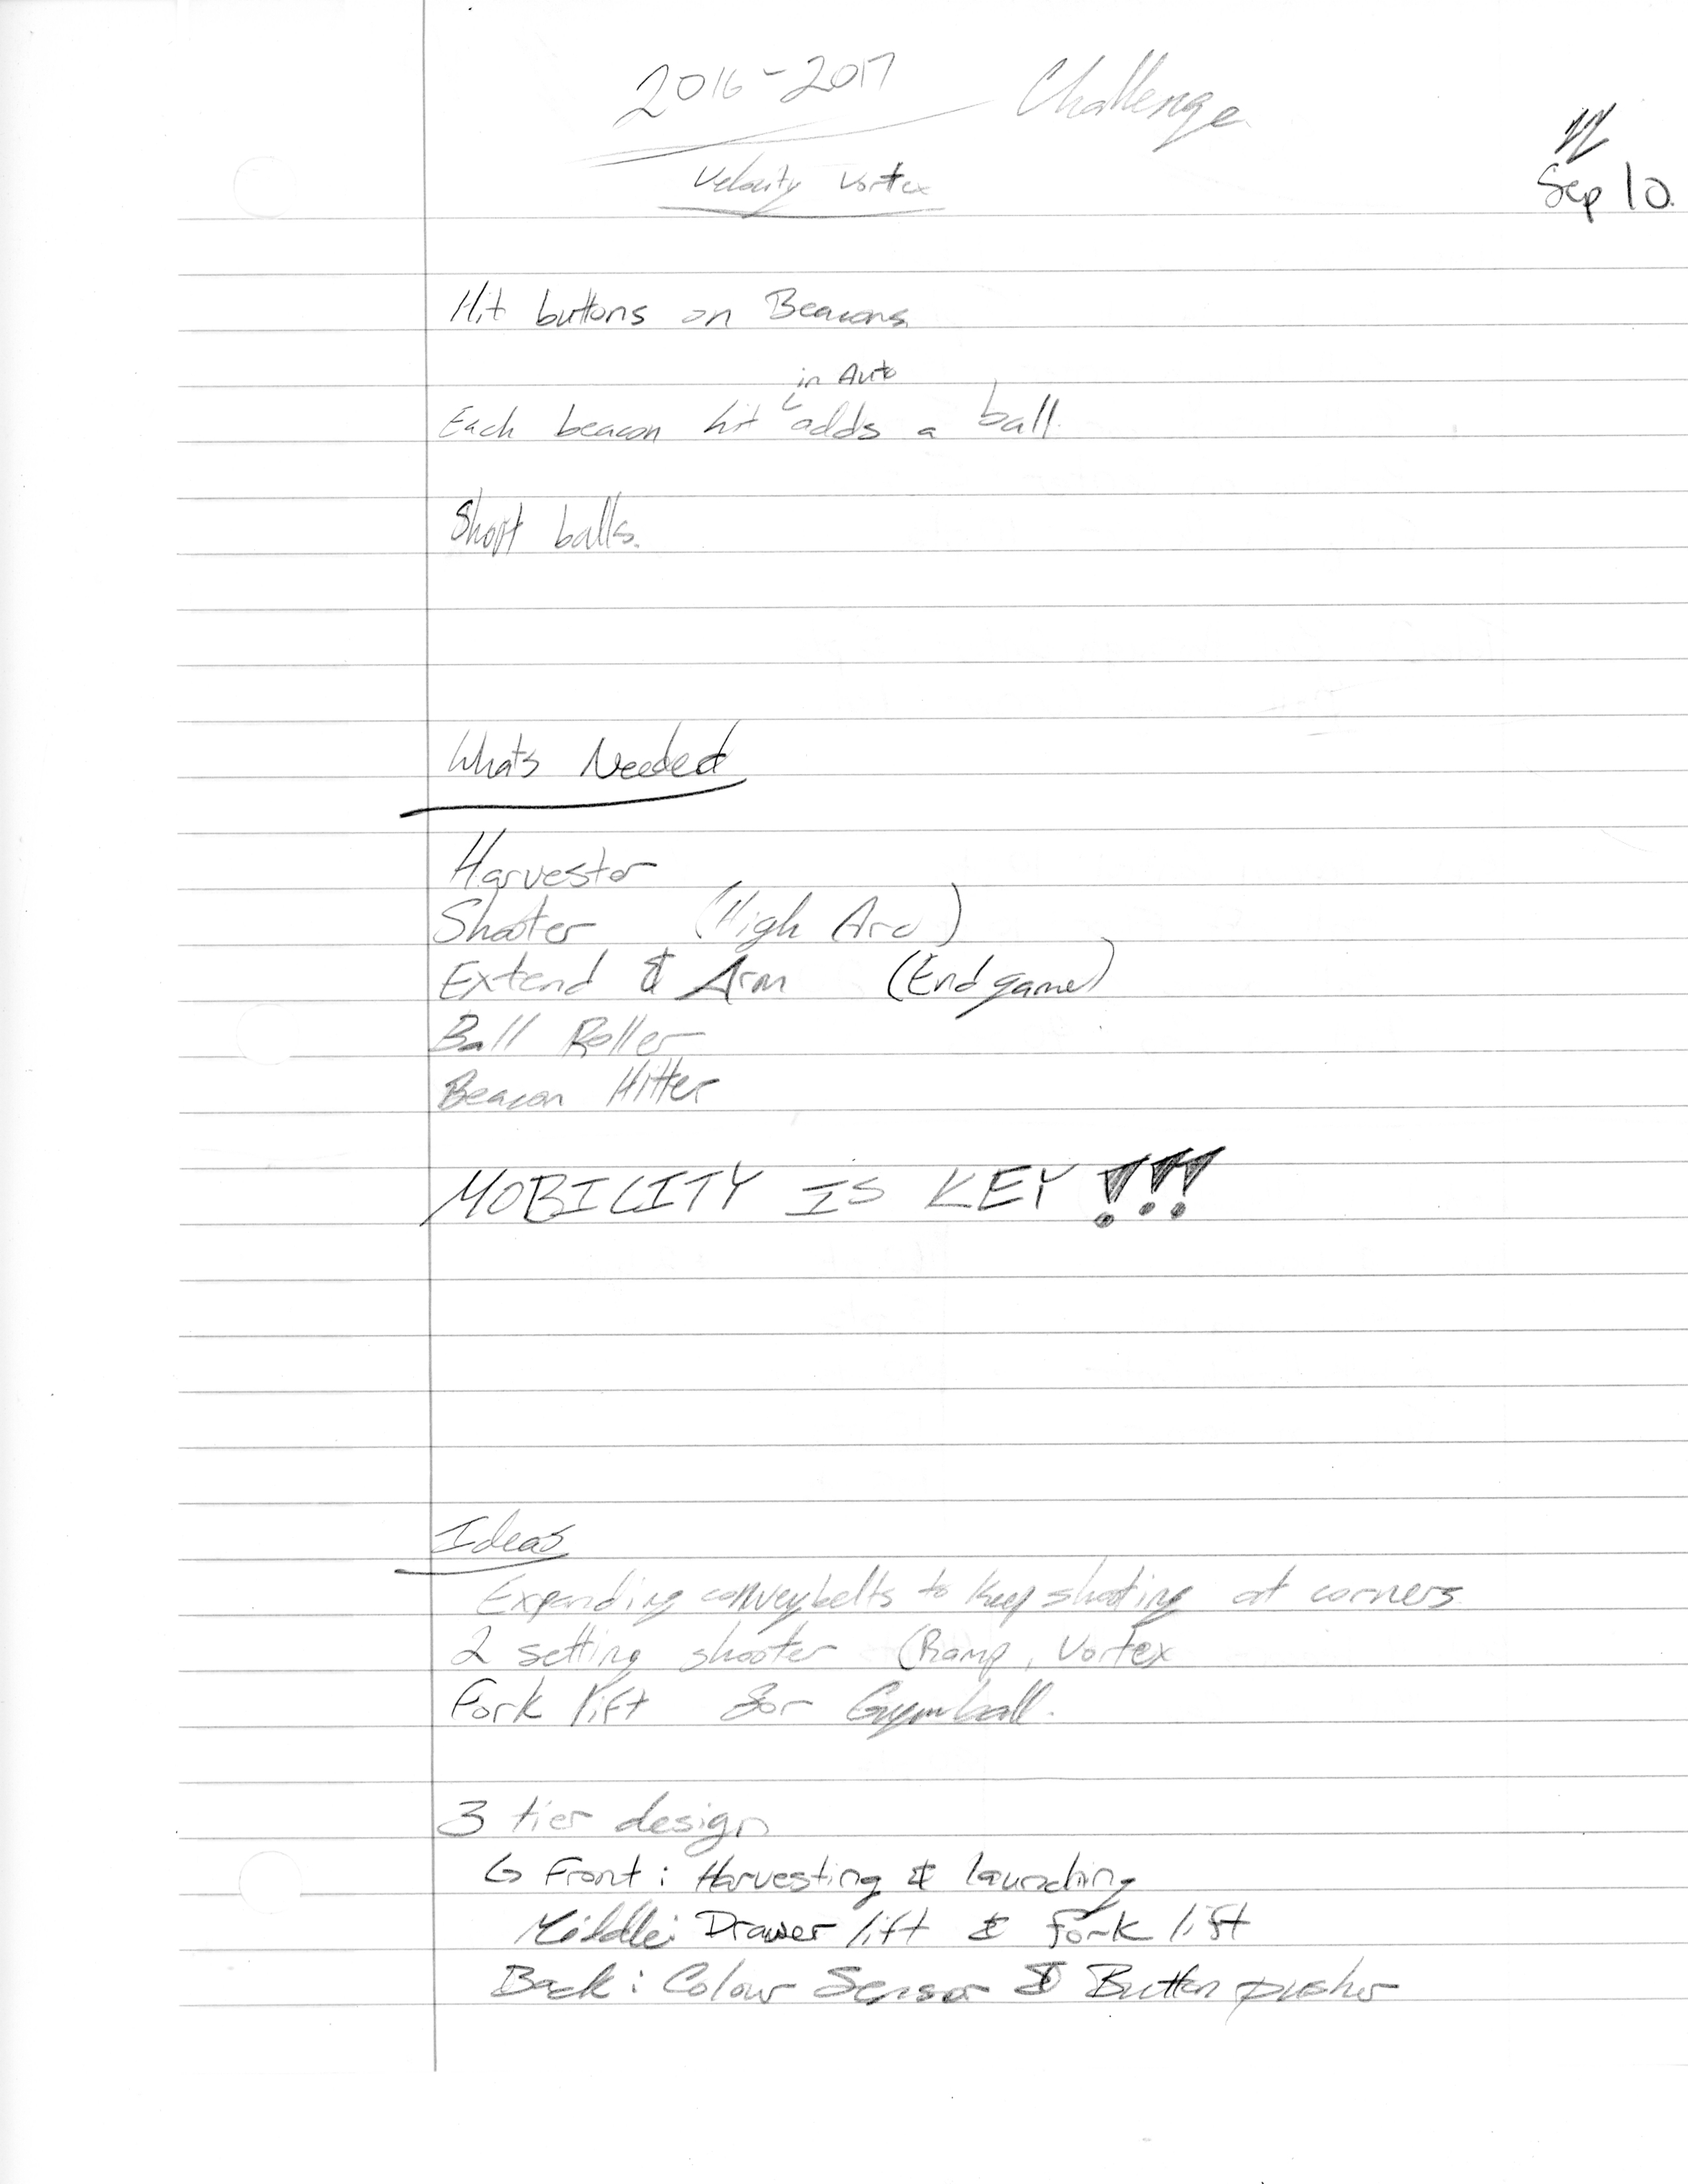 2016-2017 Challenge
Velocity Vortex
Sep 10.
Hit buttons on Beacons
in Auto
Each beacon hit adds a ball.
Shoot balls.
Whats Needed
Harvestor
Shooter (High Arc)
Extend & Arm (End game)
Ball Roller
Beacon Hitter
MOBILITY IS KEY !!!
Ideas
Expanding conveybelts to keep shooting at corners
2 setting shooter (Ramp, Vortex
Fork lift for Gymball.
3 tier design
Front: Harvesting & launching
Middle: Drawer lift & fork lift
Back: Colour Sensor & Button pusher